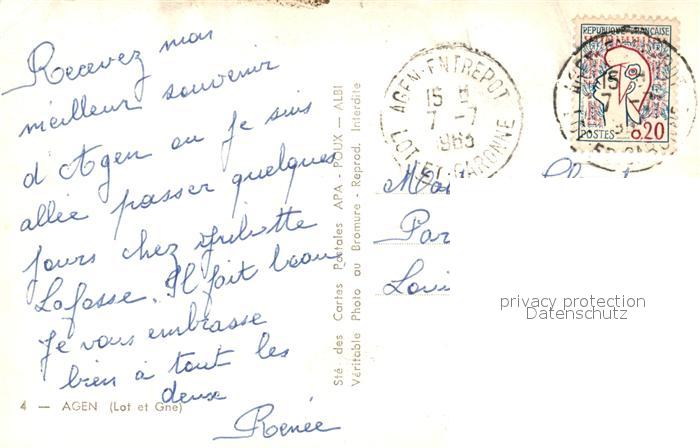 Recevez mon
meilleur souvenir
d'Agen ou je suis
allée passer quelques
jours chez
Lafosse. Il fait beau
Je vous embrasse
bien à tout les
deux
Renée
4 — AGEN (Lot et Gne)
Sté. des Cartes Postales APA - POUX - ALBI
Véritable Photo au Bromure - Reprod. Interdite
AGEN-ENTREPOT
15 H
7 -7
LOT-ET-GARONNE
REPUBLIQUE FRANÇAISE
15
7
POSTES 0,20
Par
Loui
privacy protection
Datenschutz